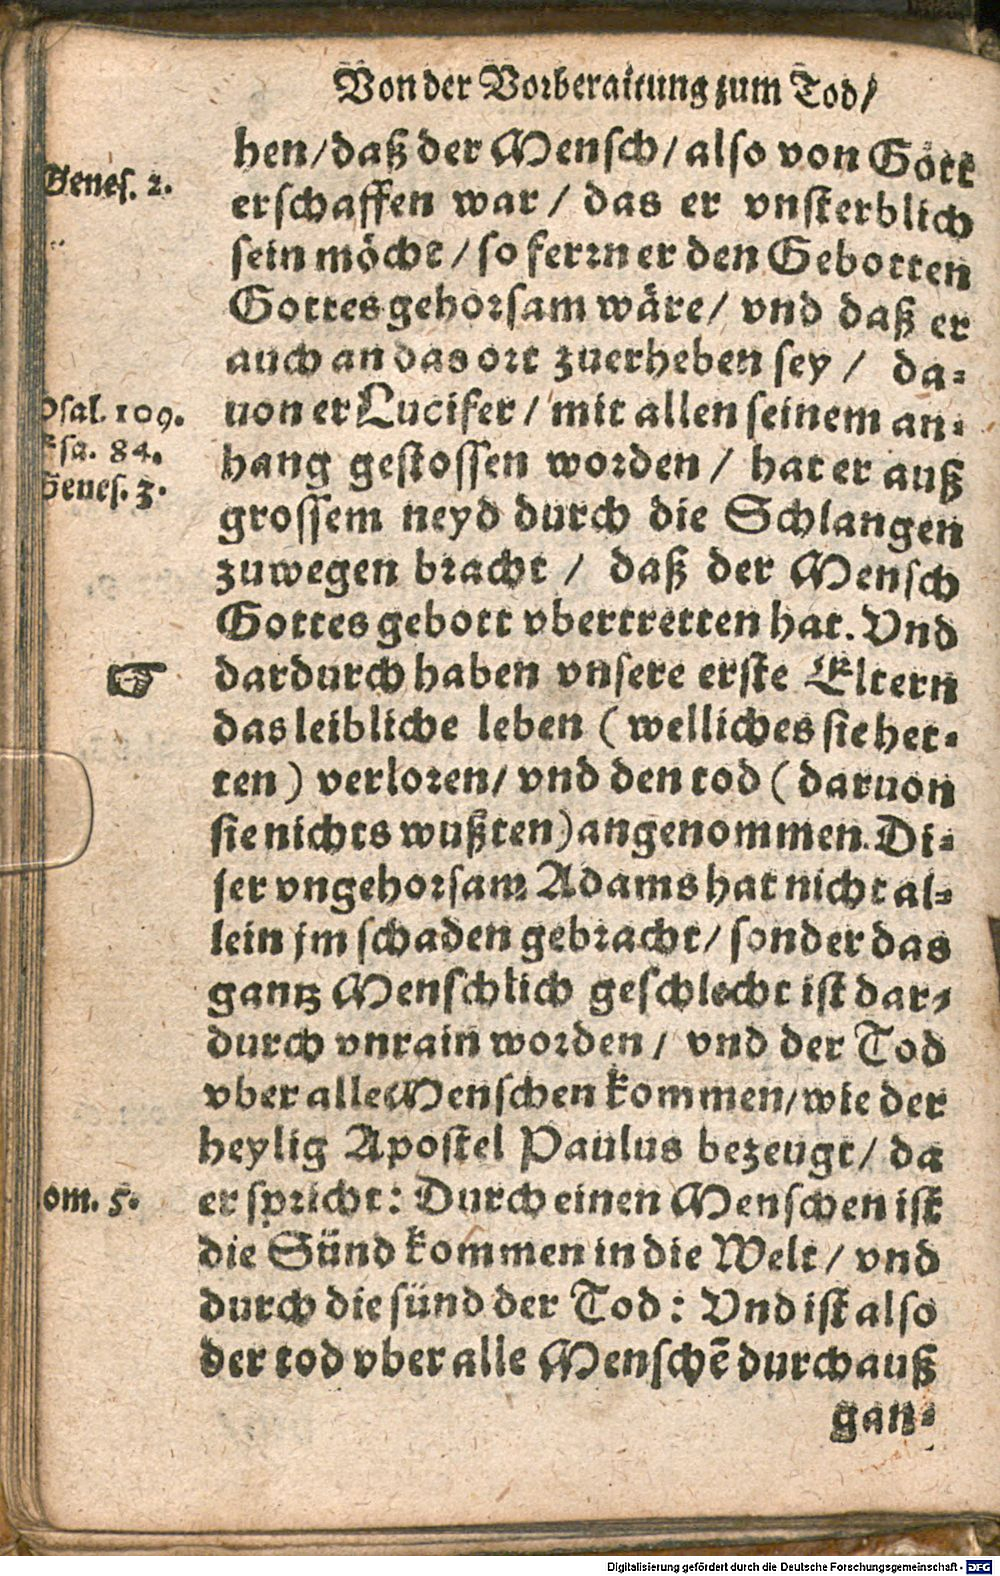 Von der Vorberaitung zum Tod/
hen/daß der Mensch/also von Gott
Genes. 2.
erschaffen war/ das er vnsterblich
sein möcht/so ferrn er den Gebotten
Gottes gehorsam wäre/ vnd daß er
auch an das ort zuerheben sey/ da-
Psal. 109.
uon er Lucifer/mit allen seinem an-
Esa. 84.
hang gestossen worden/ hat er auß
Genes. 3.
grossem neyd durch die Schlangen
zuwegen bracht/ daß der Mensch
Gottes gebott vbertretten hat. Vnd
☞ dardurch haben vnsere erste Eltern
das leibliche leben (welliches sie het-
ten) verloren/ vnd den tod (daruon
sie nichts wußten) angenommen. Di-
ser vngehorsam Adams hat nicht al-
lein jm schaden gebracht/sonder das
gantz Menschlich geschlecht ist dar-
durch vnrain worden/ vnd der Tod
vber alle Menschen kommen/wie der
heylig Apostel Paulus bezeugt/ da
om. 5.
er spricht: Durch einen Menschen ist
die Sünd kommen in die Welt/ vnd
durch die sünd der Tod: Vnd ist also
der tod vber alle Menschē durchauß
gan-
Digitalisierung gefördert durch die Deutsche Forschungsgemeinschaft - DFG